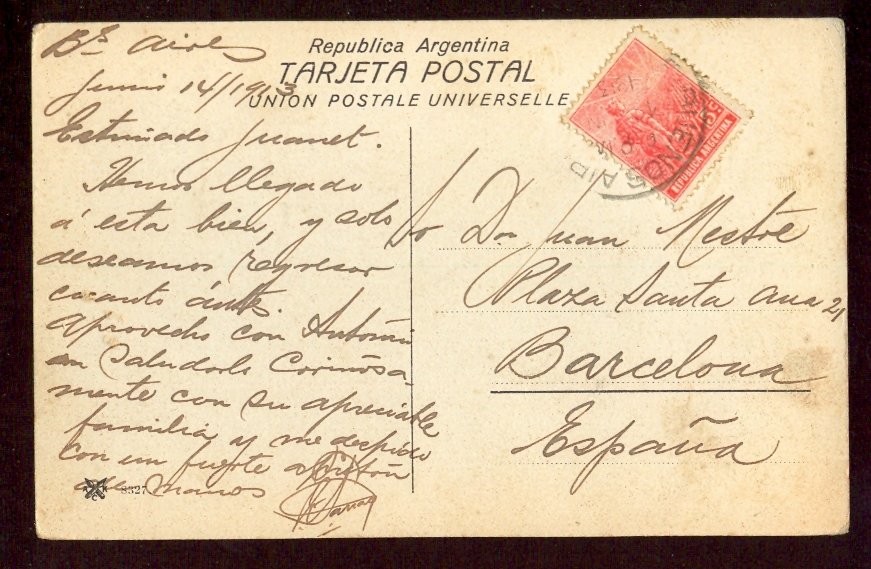 Republica Argentina
TARJETA POSTAL
UNION POSTALE UNIVERSELLE
Bs Aires
Junio 14/1913
Estimado Juanet.
Hemos llegado
á esta bien, y solo
deseamos regresar
cuanto ántes.
Aprovecho con Antonio
en saludarle Cariñosa
mente con su apreciable
familia y me despido
con un fuerte apretón
de manos
8327
Sr Dn Juan Mestre
Plaza Santa Ana 21
Barcelona
España
REPUBLICA ARGENTINA
BUENOS AIRES